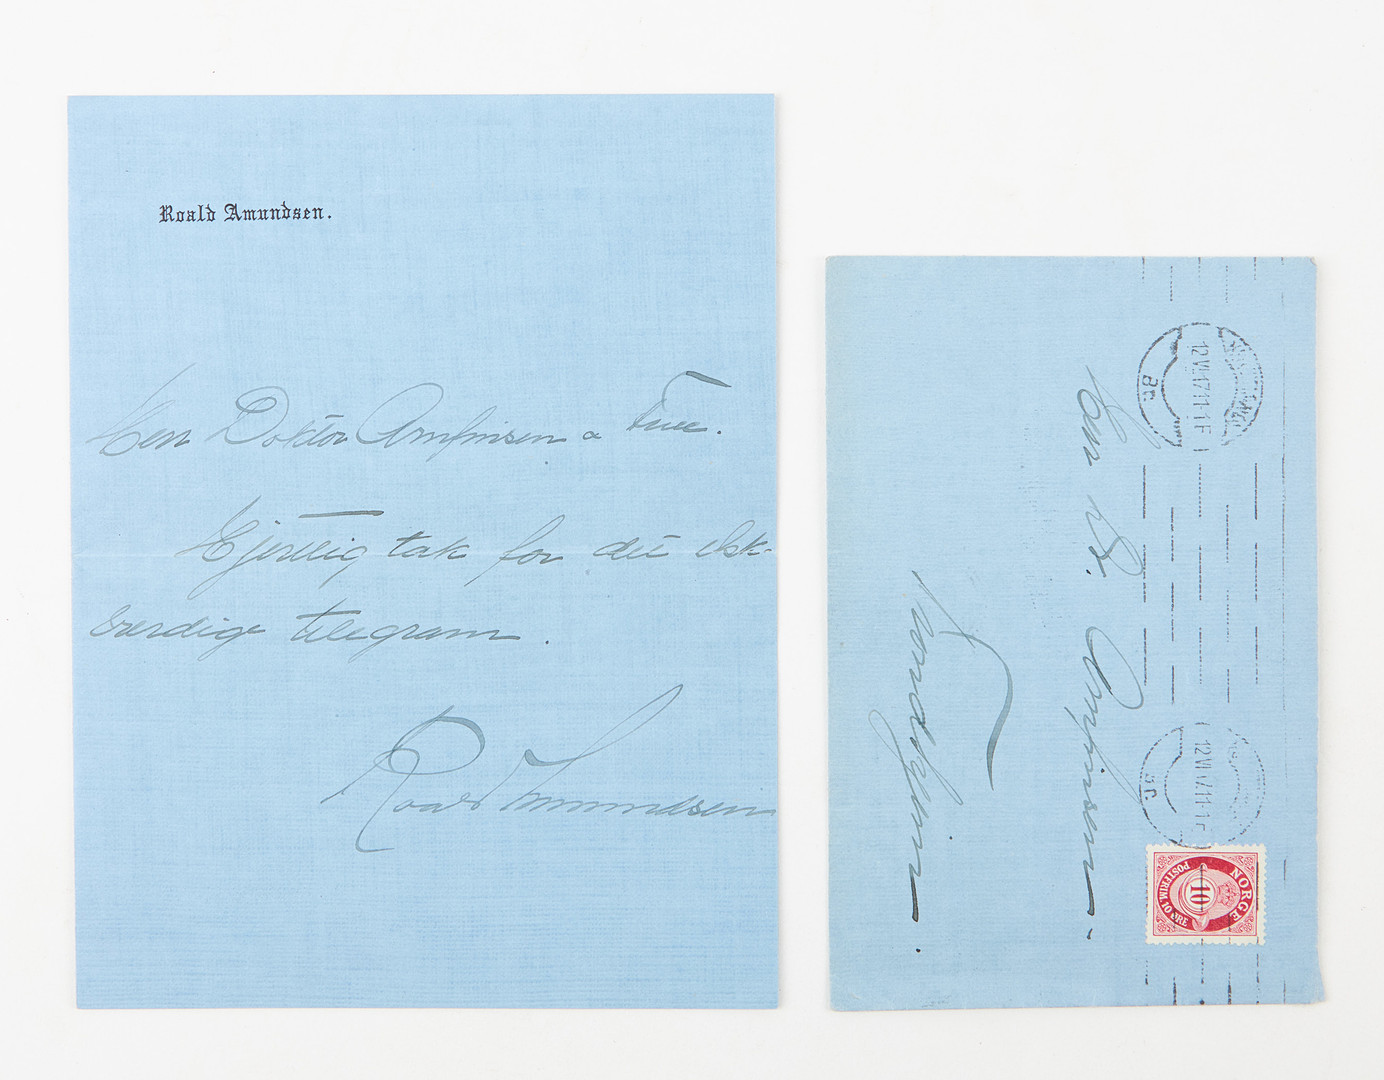 Roald Amundsen.
Herr Doktor Arnfinsen & Frue.
Hjertelig tak for det elsk-
værdige telegram.
Roald Amundsen
Herr Dr. Arnfinsen
12 VI 17 11-1 F
12 VI 17 11-1 F
NORGE
10
POSTFRIM. 10 ØRE